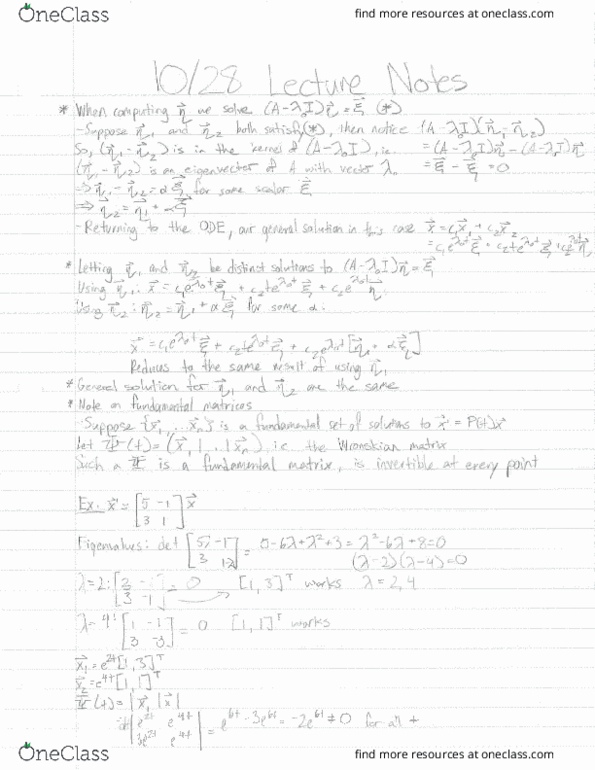 OneClass
find more resources at oneclass.com
10/28 Lecture Notes
* When computing η⃗ we solve (A-λ₀I)η⃗ = ξ⃗ (*)
-Suppose η⃗₁ and η⃗₂ both satisfy(*), then notice (A-λ₀I)(η⃗₁-η⃗₂)
So, (η⃗₁-η⃗₂) is in the kernel of (A-λ₀I), i.e. =(A-λ₀I)η⃗₁-(A-λ₀I)η⃗₂
(η⃗₁-η⃗₂) is an eigenvector of A with vector λ₀ = ξ⃗ - ξ⃗ = 0
⇒ η⃗₁-η⃗₂=αξ⃗, for some scalar
⇒ η⃗₂=η⃗₁+αξ⃗
-Returning to the ODE, our general solution in this case x⃗=c₁x⃗₁+c₂x⃗₂
=c₁e^{λ₀t}ξ⃗+c₂te^{λ₀t}ξ⃗+c₂e^{λ₀t}η⃗
* Letting η⃗₁ and η⃗₂ be distinct solutions to (A-λ₀I)η⃗=ξ⃗
Using η⃗₁: x⃗=c₁e^{λ₀t}ξ⃗+c₂te^{λ₀t}ξ⃗+c₂e^{λ₀t}η⃗
Using η⃗₂: η⃗₂=η⃗₁+αξ⃗ for some α:
x⃗=c₁e^{λ₀t}ξ⃗+c₂te^{λ₀t}ξ⃗+c₂e^{λ₀t}[η⃗₁+αξ⃗]
Reduces to the same result of using η⃗₁
* General solution for η⃗₁ and η⃗₂ are the same
* Note on fundamental matrices
-Suppose {x⃗₁...x⃗ₙ} is a fundamental set of solutions to x⃗'=P(t)x⃗
Let Ψ(t)=(x⃗₁|...|x⃗ₙ), i.e. the Wronskian matrix
Such a Ψ is a fundamental matrix, is invertible at every point
Ex. x⃗'=[5 -1; 3 1]x⃗
Eigenvalues: det = λ²-6λ+8=0
(λ-2)(λ-4)=0
λ=2: [3 -1; 3 -1]=0 [1,3]ᵀ works λ=2,4
λ=4: [1 -1; 3 -3]=0 [1,1]ᵀ works
x⃗₁=e^{2t}[1,3]ᵀ
x⃗₂=e^{4t}[1,1]ᵀ
Ψ(t)=|x⃗₁|x⃗₂|
det|e^{2t} e^{4t}; 3e^{2t} e^{4t}| = e^{6t}-3e^{6t}=-2e^{6t}≠0 for all t
OneClass
find more resources at oneclass.com